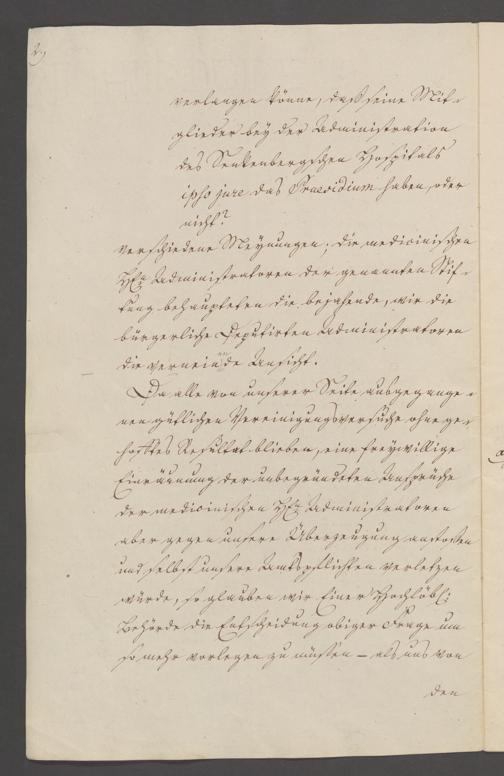 2,
verlangen könne, daß seine Mit-
glieder bey der Administration
des Senkenbergschen Hospitals
ipso jure das Praesidium haben, oder
nicht?
verschiedene Meynungen; die medicinischen
HE. Administratoren der genannten Stif-
tung behaupteten die bejahende, wir die
bürgerliche Deputirten Administratoren
die verneinende Ansicht.
Da alle von unserer Seite ausgegange-
nen gütlichen Vereinigungsversuche ohne ge-
hofftes Resultat blieben, eine freywillige
Einräumung der unbegründeten Ansprüche
der medicinischen HE. Administratoren
aber gegen unsere Überzeugung anstoßen
und selbst unsere Amtspflichten verletzen
würde, so glauben wir Einer Hochlöbl:
Behörde die Entscheidung obiger Frage um
so mehr vorlegen zu müssen – als uns von
den